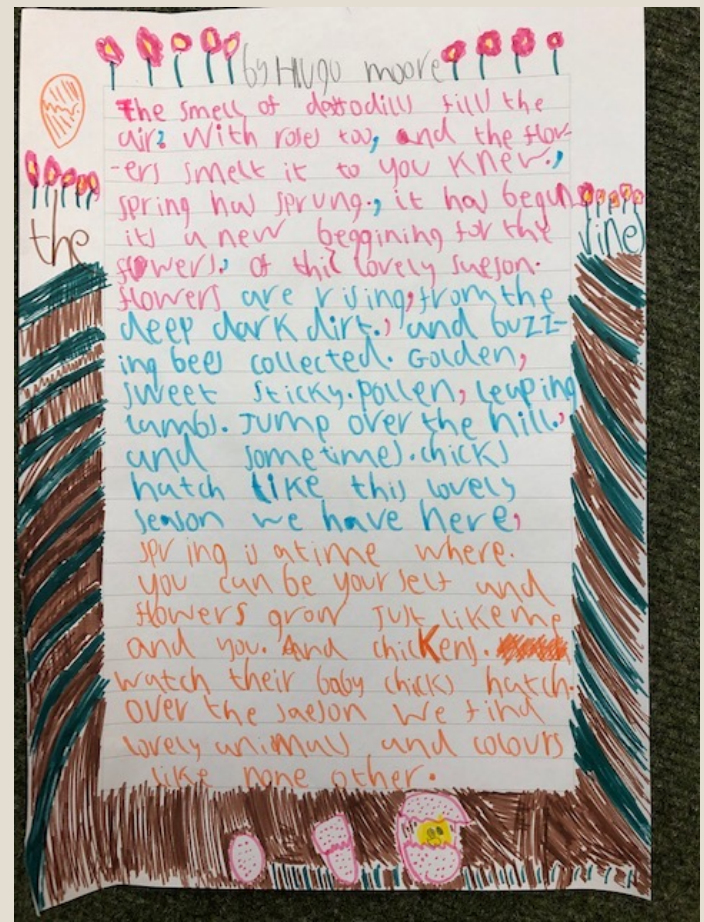 by Hugo moore
the vines
The smell of daffodills fills the
air. With roses too, and the flow-
-ers smelt it to you knew.,
spring has sprung., it has begun
its a new beggining for the
flowers., of this lovely sueson.
flowers are rising, from the
deep dark dirt., and buzz-
ing bees collected. Golden,
sweet sticky. pollen, leaping
lambs. Jump over the hill.,
and sometimes. chicks
hatch like this lovely
season we have here,
spring is a time where.
you can be your self and
flowers grow just like me
and you. And chickens.
watch their baby chicks hatch.
over the saeson we find
lovely animals and colours
like none other.